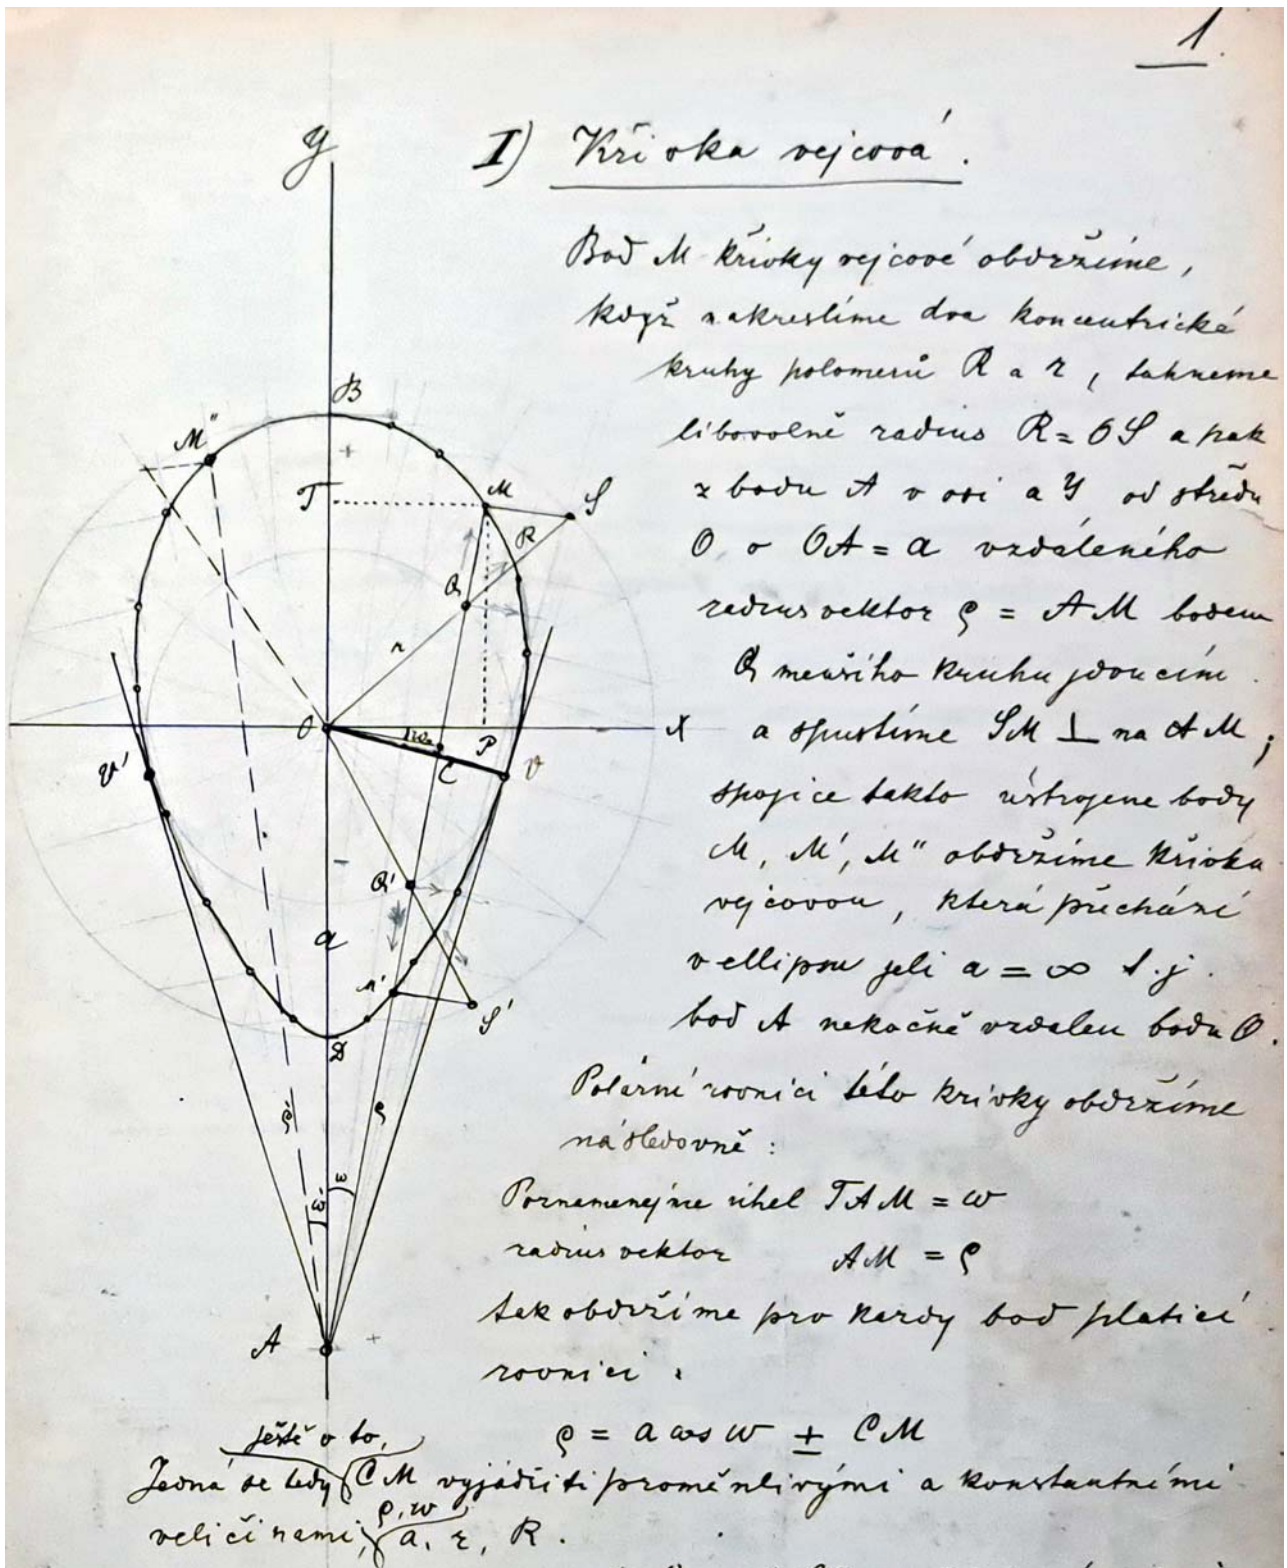 1.
I) Křivka vejcová.
Bod M křivky vejcové obdržíme,
když nakreslíme dva koncentrické
kruhy polomerů R a r, tahneme
libovolně radius R = OS a pak
z bodu A v osi a Y od středu
O o OA = a vzdáleného
radius vektor ρ = AM bodem
Q menšího kruhu jdoucím
a spustíme SM ⊥ na AM;
spojice takto ústrojene body
M, M', M" obdržíme křivku
vejcovou, která přichází
v ellipsu jeli a = ∞ t.j.
bod A nekočně vzdalen bodu O.
Polární rovnici této krivky obdržíme
následovně:
Poznamenejme úhel TAM = w
radius vektor AM = ρ
tak obdržíme pro kazdy bod platící
rovnici:
ρ = a cos w ± CM
ještě o to,
Jedná se tedy CM vyjádřiti proměnlivými a konstantními
ρ, w
veličinami, a, r, R.
Y
B
M"
T
M
S
R
Q
r
O
w
P
X
C
V'
V
Q'
a
M'
S'
D
ρ'
ρ
ε'
ε
A
+
-
+